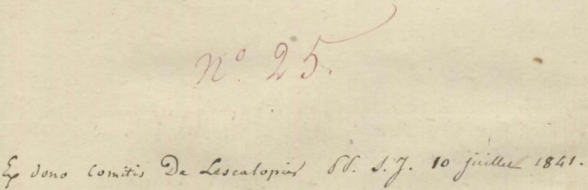 N° 25.
Ex dono Comitis De Lescalopier PP. S. J. 10 juillet 1841.